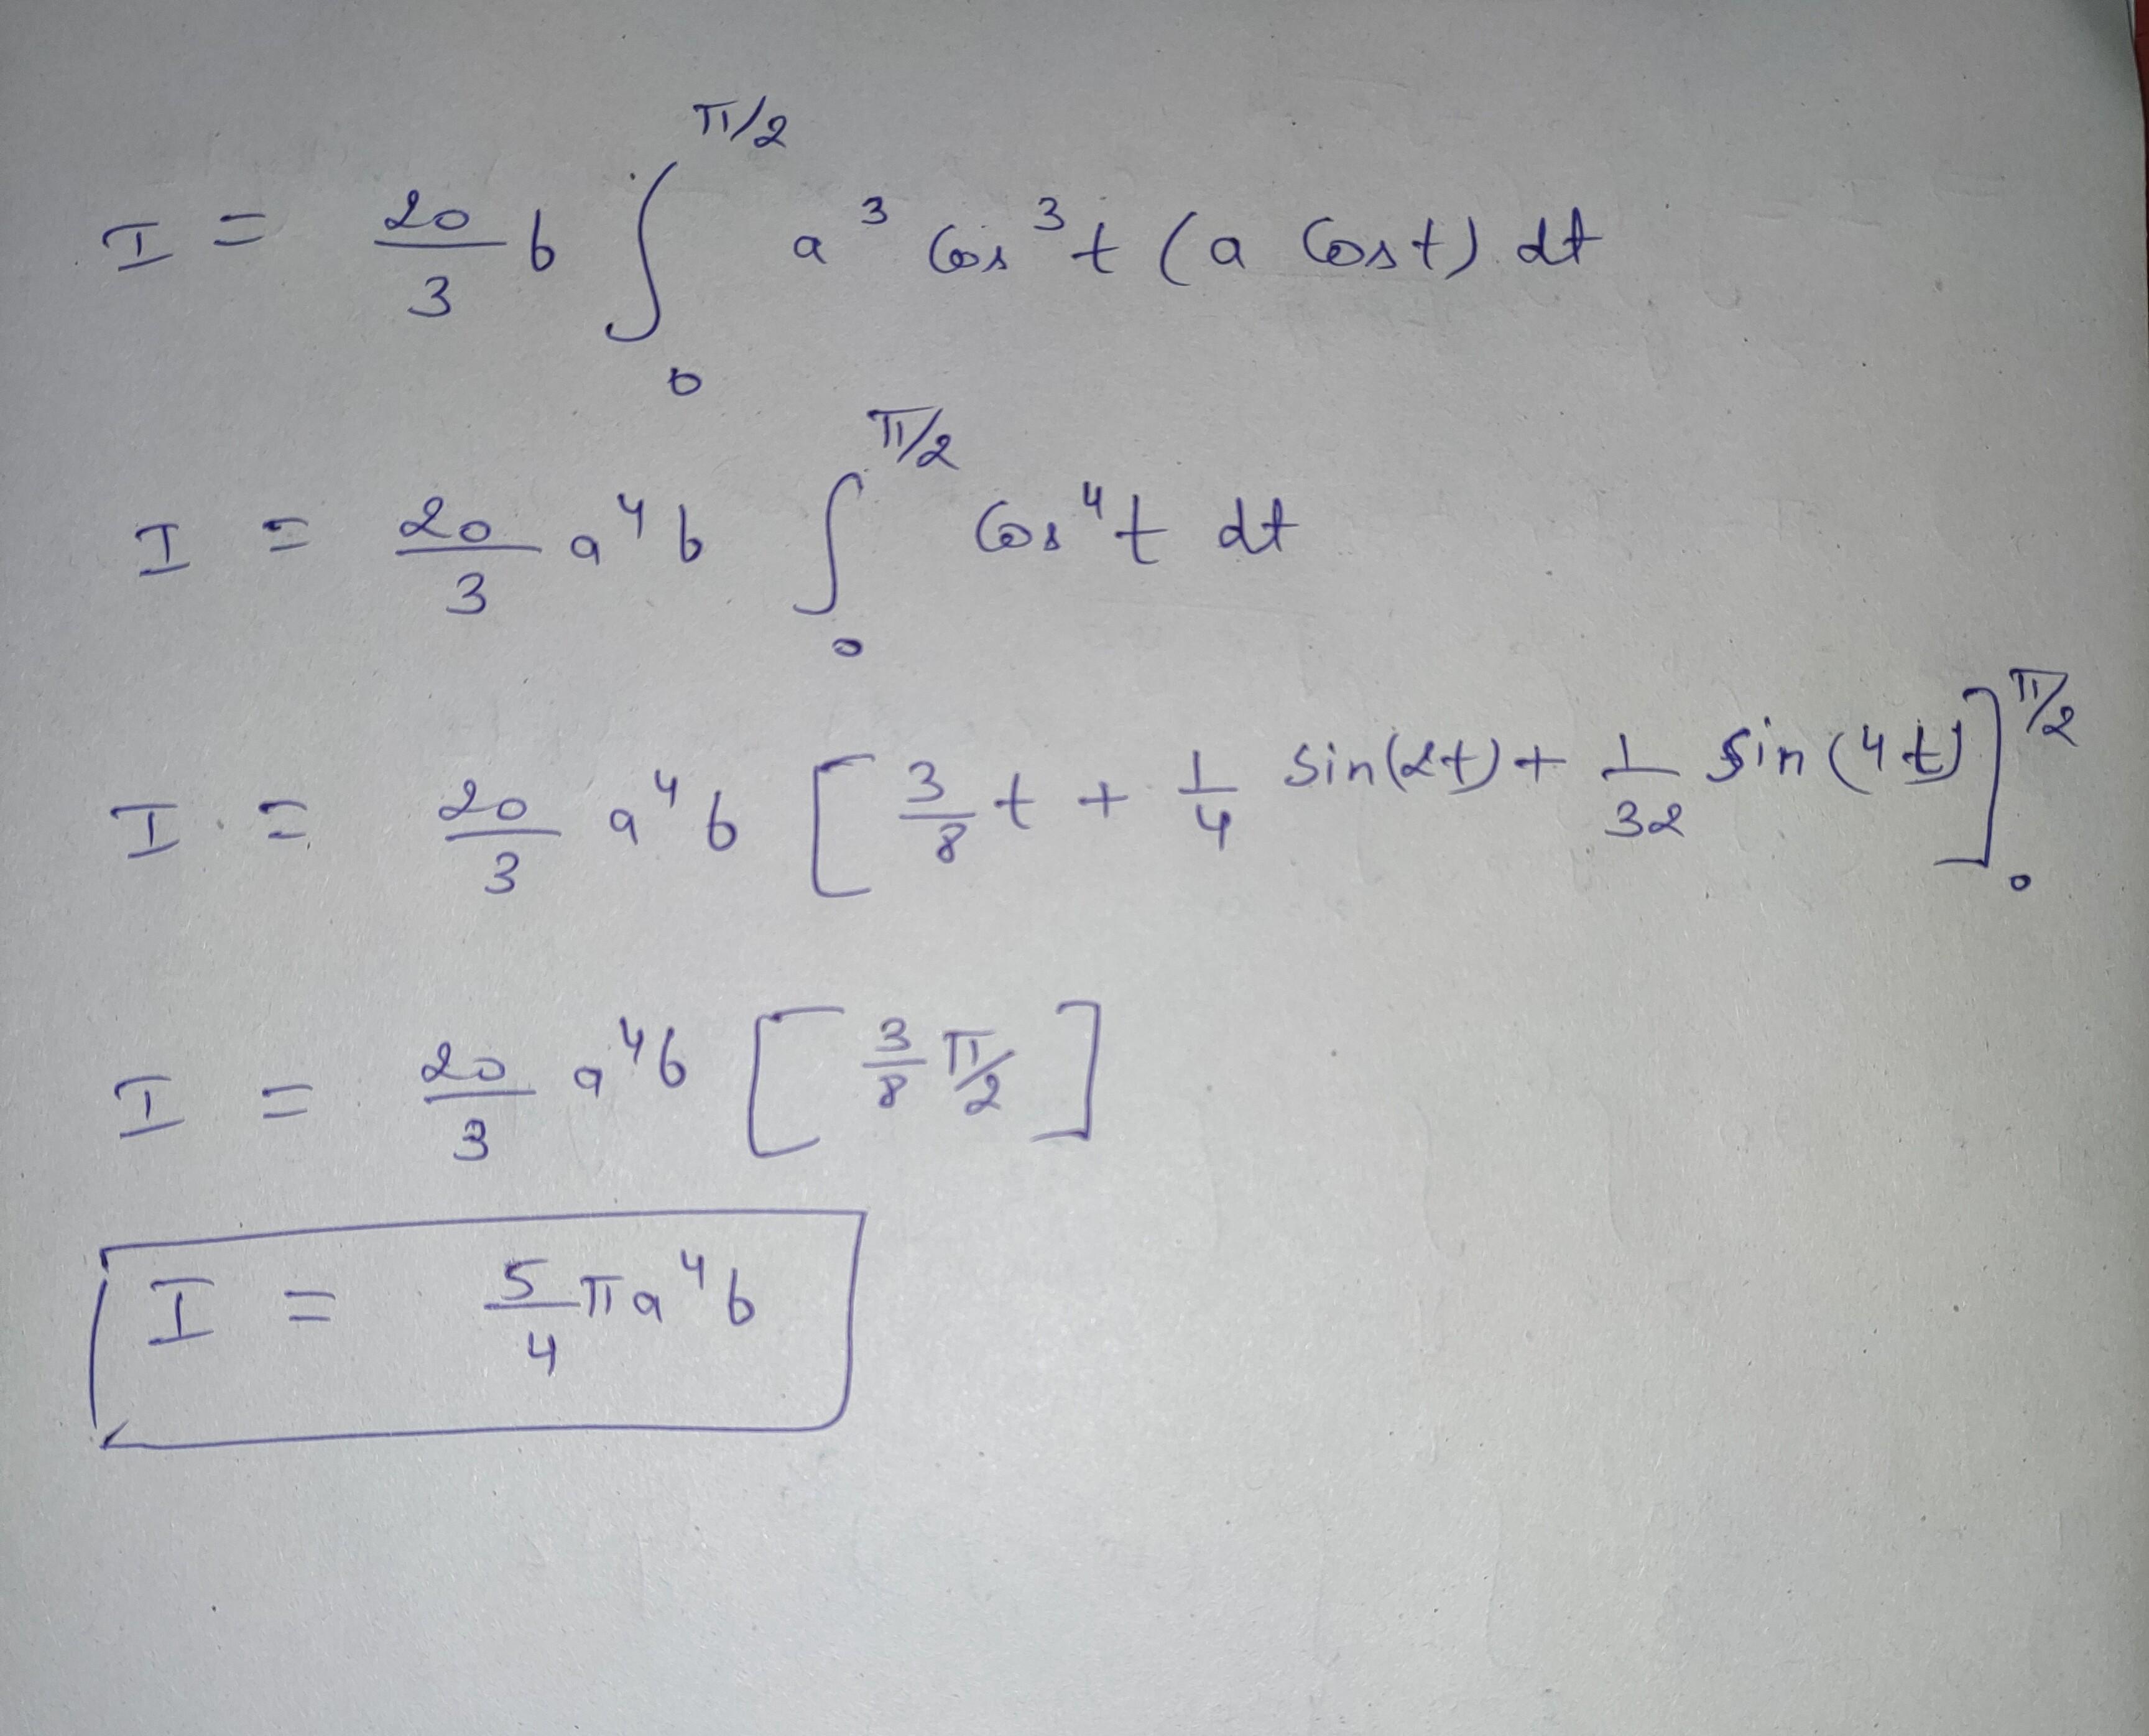 I = 20/3 b ∫₀^{π/2} a³ cos³t (a cost) dt
I = 20/3 a⁴b ∫₀^{π/2} cos⁴t dt
I = 20/3 a⁴b [3/8 t + 1/4 sin(2t) + 1/32 sin(4t)]₀^{π/2}
I = 20/3 a⁴b [3/8 π/2]
I = 5/4 πa⁴b